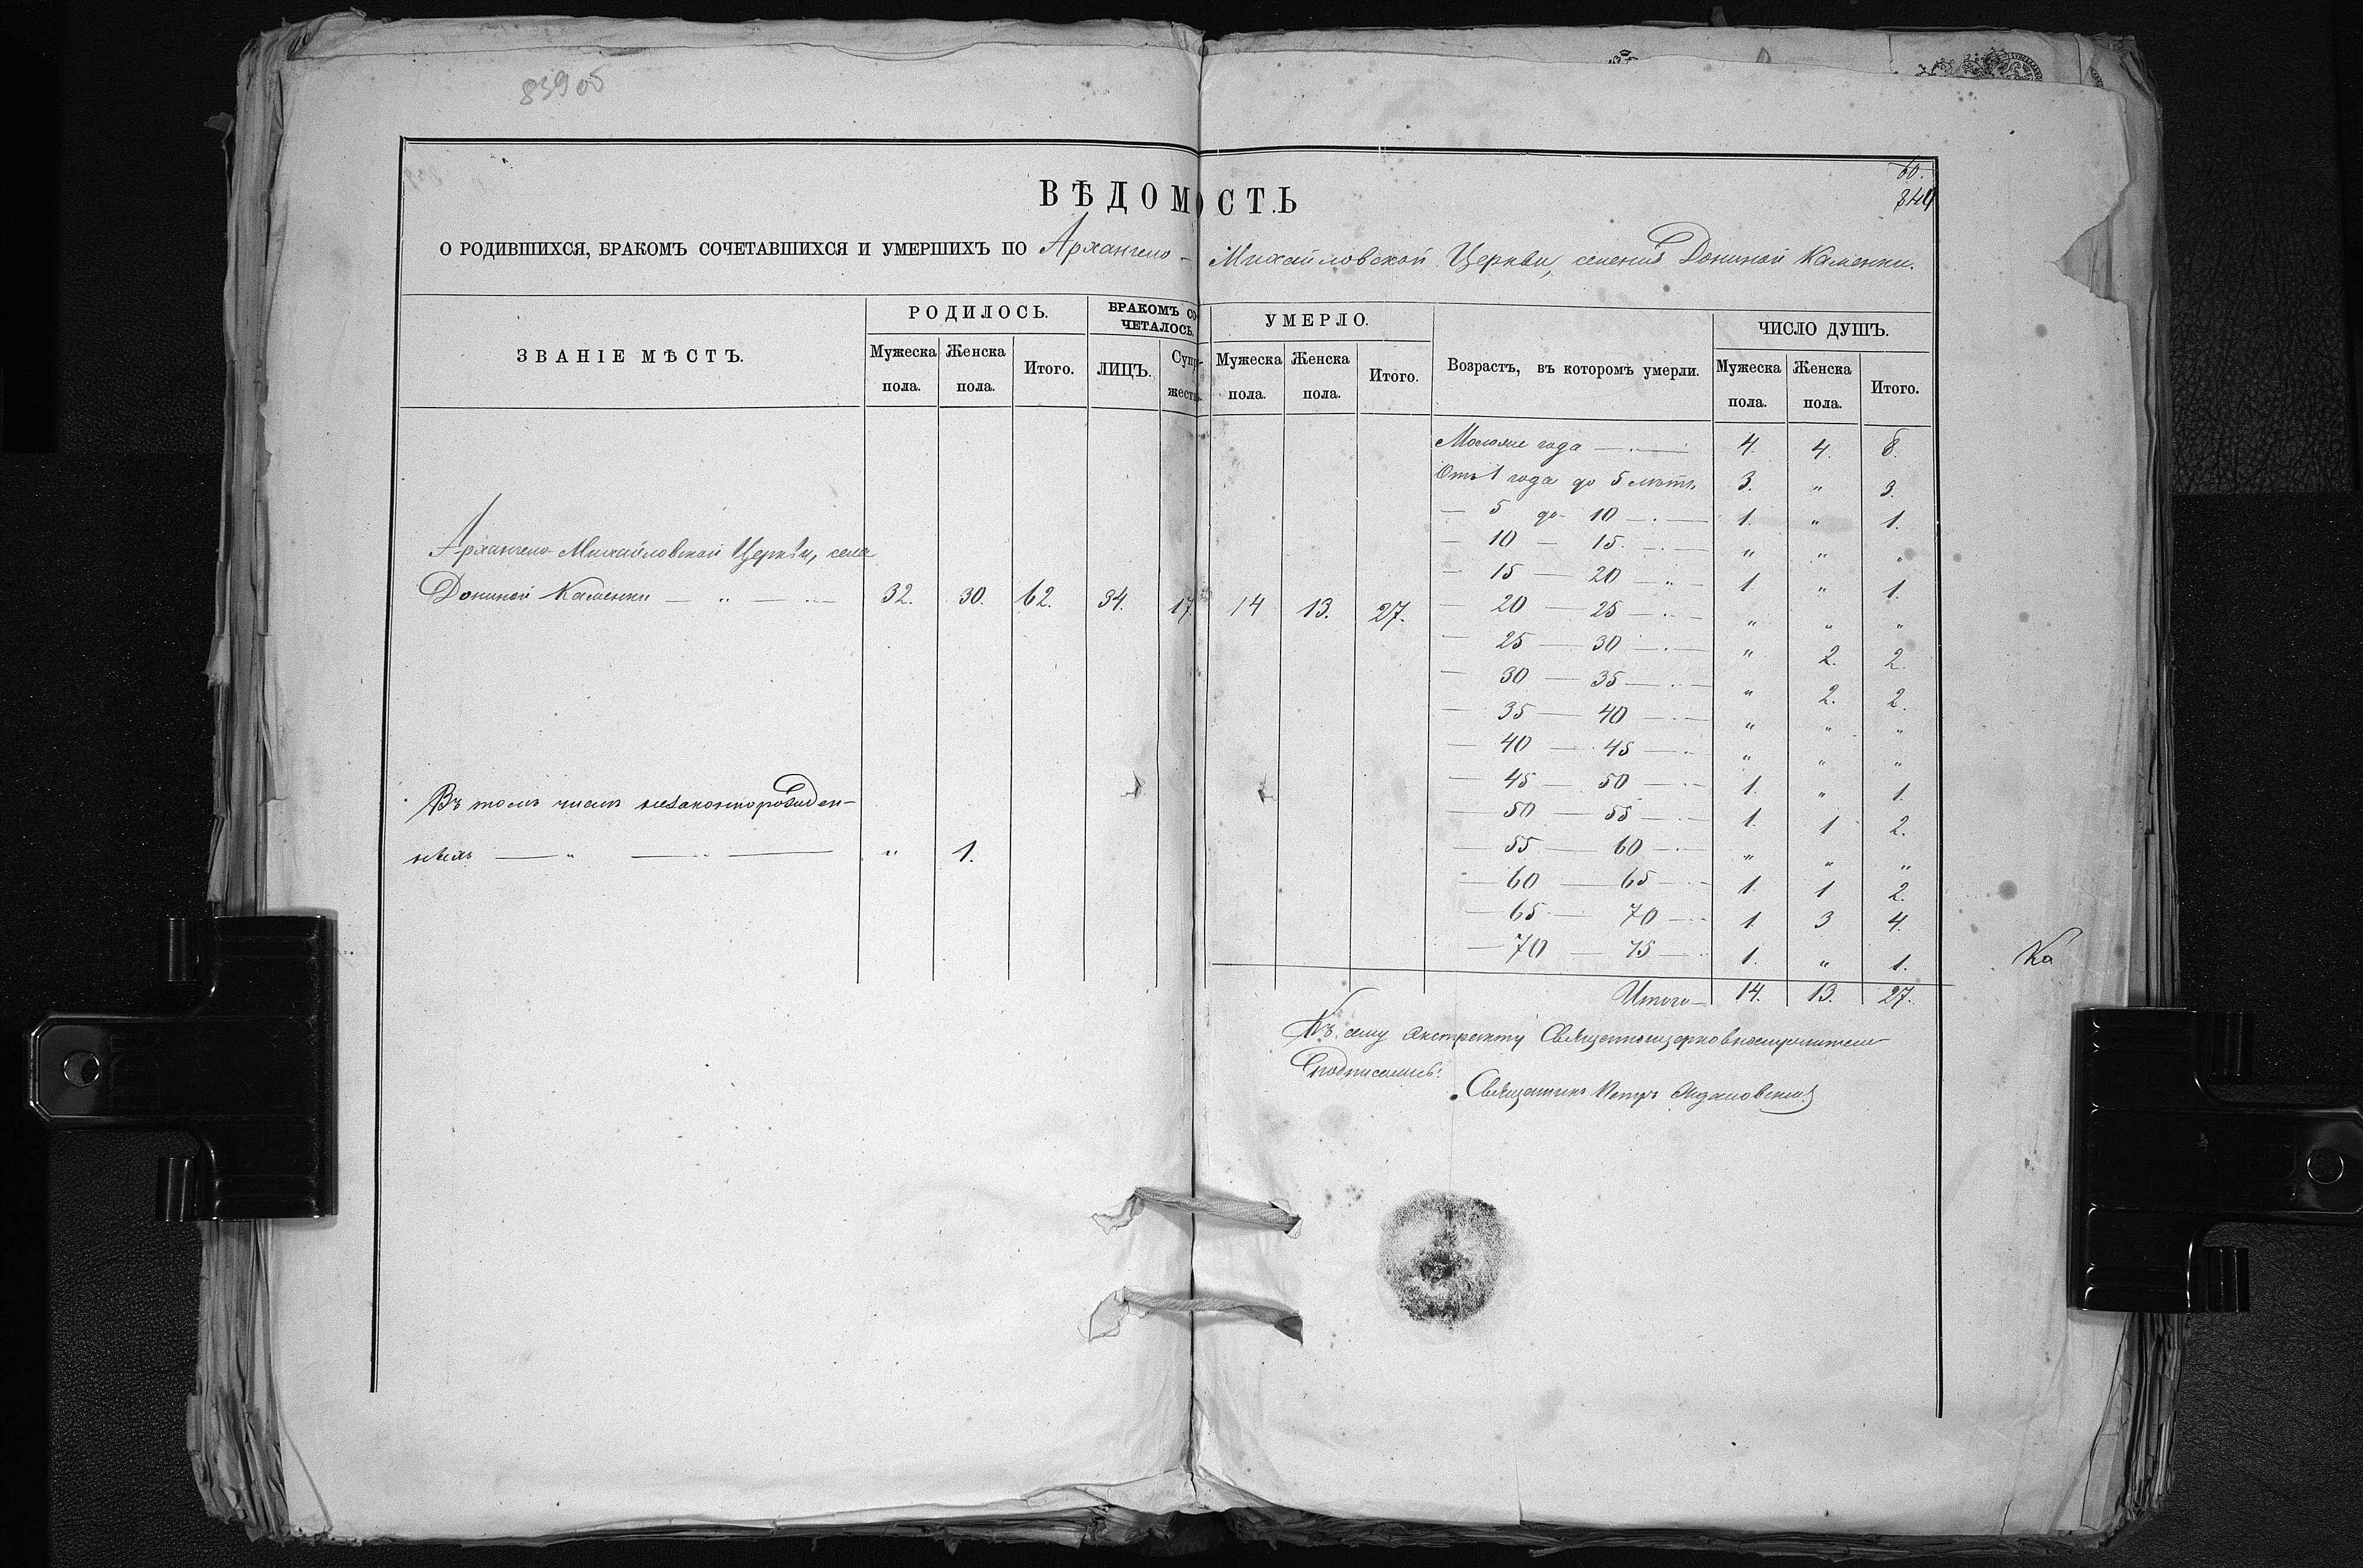 839 об
60.
844
ВѢДОМОСТЬ
О РОДИВШИХСЯ, БРАКОМЪ СОЧЕТАВШИХСЯ И УМЕРШИХЪ ПО Архангело-Михайловской Церкви, селенія Дониной Каменки.
ЗВАНІЕ МѢСТЪ.
РОДИЛОСЬ.
Мужеска пола.
Женска пола.
Итого.
БРАКОМЪ СО-
ЧЕТАЛОСЬ.
ЛИЦЪ.
Супру-
жествъ.
УМЕРЛО.
Мужеска пола.
Женска пола.
Итого.
Возрастъ, въ которомъ умерли.
ЧИСЛО ДУШЪ.
Мужеска пола.
Женска пола.
Итого.
Архангело-Михайловской Церкви, села
Дониной Каменки — „ — 32. 30. 62. 34. 17. 14 13. 27.
Въ томъ числѣ незаконнорожден-
ныхъ — „ — „ — „ 1.
года — 4. 4. 8.
Отъ 1 года до 5 лѣтъ 3. „ 3.
— 5 до 10 — 1. „ 1.
— 10 — 15 — „ „ „
— 15 — 20 — 1 „ 1.
— 20 — 25 — „ „ „
— 25 — 30 — „ 2. 2.
— 30 — 35 — „ 2. 2.
— 35 — 40 — „ „ „
— 40 — 45 — „ „ „
— 45 — 50 — 1. „ 1.
— 50 — 55 — 1. 1 2.
— 55 — 60 — „ „ „
— 60 — 65 — 1. 1 2.
— 65 — 70 — 1. 3 4.
— 70 — 75 — 1. „ 1.
Итого — 14. 13. 27.
Къ сему экстракту Священноцерковнослужители
подписались:
Священникъ Петръ
Ка